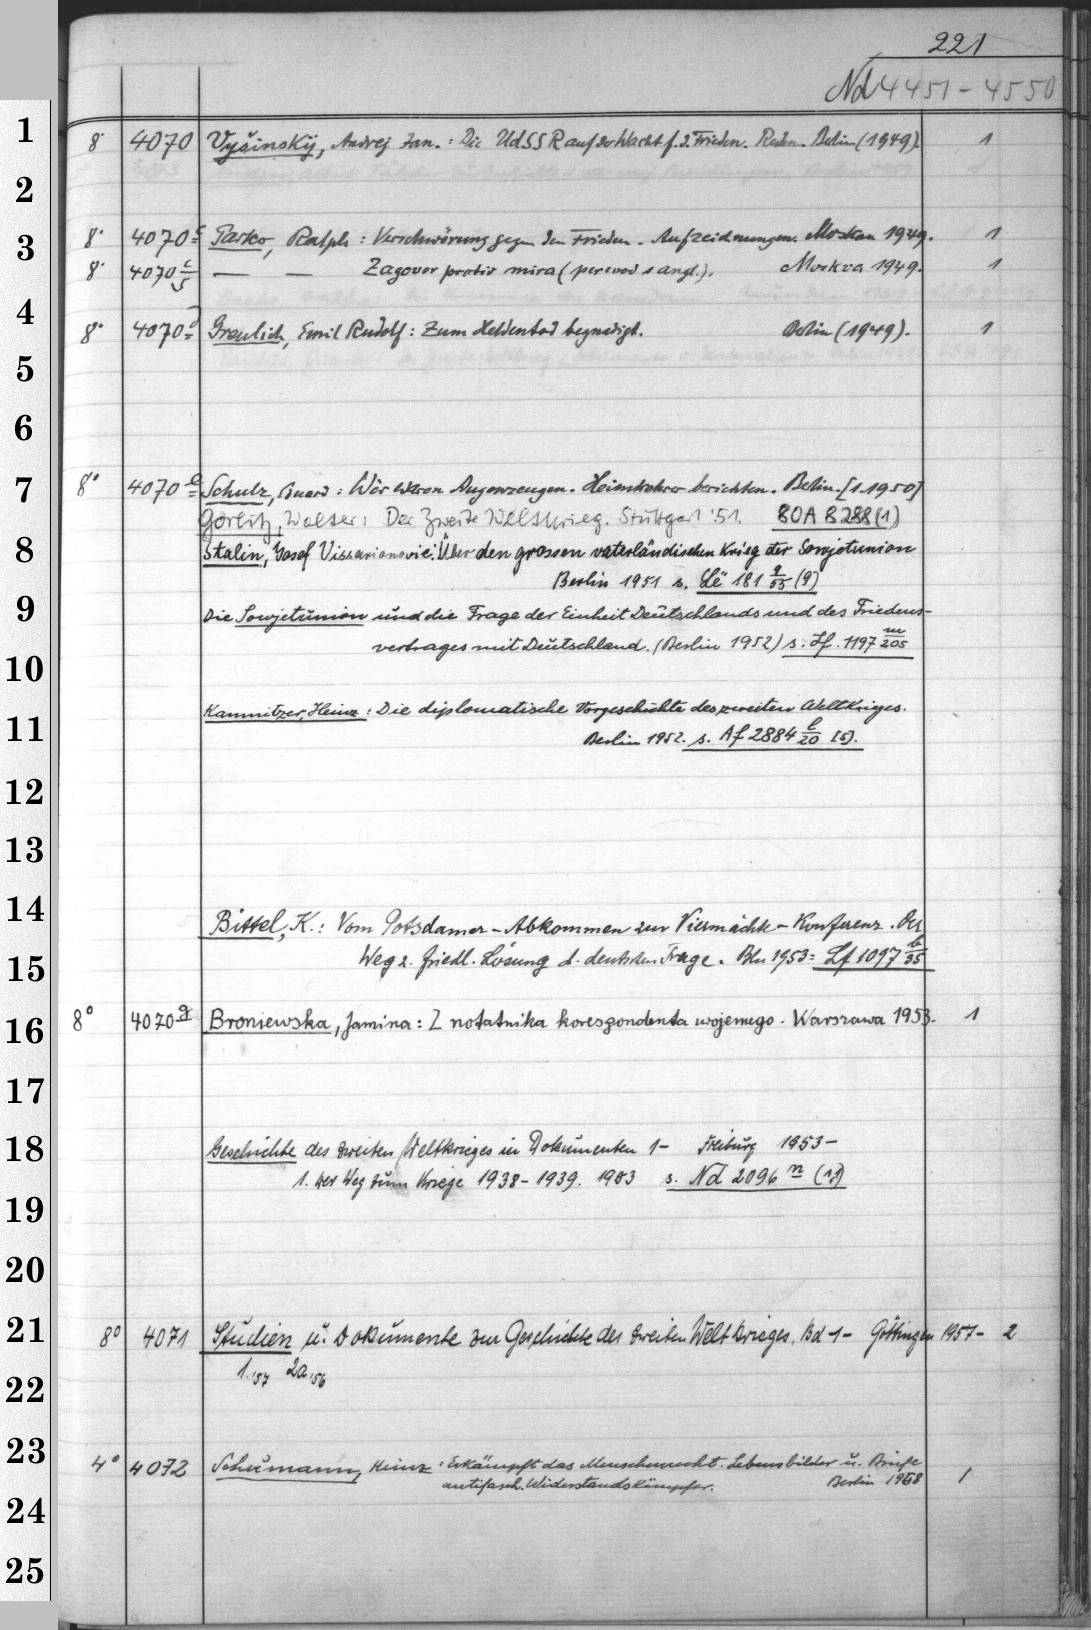 221
Nd 4451 - 4550
1
8° 4070 Vyšinskij, Andrej Jan.: Die UdSSR auf der Wacht f. d. Frieden. Reden. Berlin (1949). 1
2
3
8° 4070 c Parker, Ralph: Verschwörung gegen den Frieden. Aufzeichnungen. Moskau 1949. 1
8° 4070 c/5 — — Zagovor protiv mira (perevod s angl.). Moskva 1949. 1
4
8° 4070 d Greulich, Emil Rudolf: Zum Heldentod begnadigt. Berlin (1949). 1
5
6
7
8° 4070 e Schulz, : Wir waren Augenzeugen. Heimkehrer berichten. Berlin. [1.1950]
Görlitz, Walter: Der Zweite Weltkrieg. Stuttgart '51. 80 A 8288 (1)
8
Stalin, Josef Vissarionovič: Über den grossen vaterländischen Krieg der Sowjetunion
Berlin 1951 s. (9)
9
Die Sowjetunion und die Frage der Einheit Deutschlands und des Friedens-
vertrages mit Deutschland. (Berlin 1952) s. Lf. 1197 m/205
10
Kamnitzer, Heinz: Die diplomatische Vorgeschichte des zweiten Weltkrieges.
11
Berlin 1952. s. Af 2884 l/20 (5).
12
13
14
Bittel, K.: Vom Potsdamer-Abkommen zur Viermächte-Konferenz. Der
Weg z. friedl. Lösung d. deutschen Frage. Bln 1953 = Lf 1097 b/35
15
8° 4070 g Broniewska, Janina: Z notatnika korespondenta wojennego. Warszawa 1953. 1
16
17
18
Geschichte des zweiten Weltkrieges in Dokumenten 1- Freiburg 1953-
1. Der Weg zum Kriege 1938-1939. 1953 s. Nd 2096 n (1)
19
20
21
8° 4071 Studien u. Dokumente zur Geschichte des zweiten Weltkrieges. Bd 1- Göttingen 1957- 2
1.'57 2a '56
22
23
4° 4072 Schumann, Heinz: Erkämpft das Menschenrecht. Lebensbilder u. Briefe
antifasch. Widerstandskämpfer. Berlin 1958 1
24
25